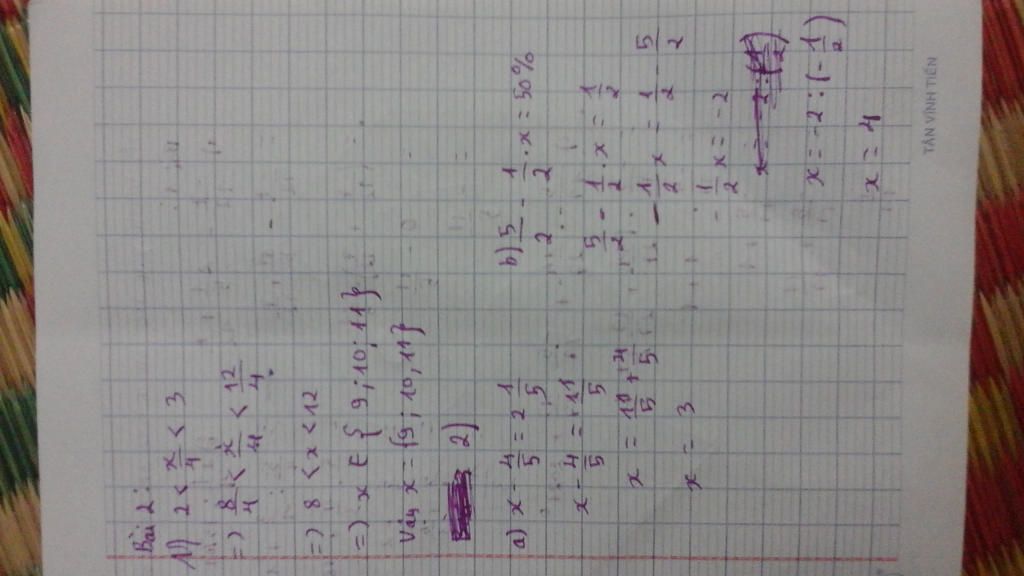 Bài 2:
1) 2 < x/4 < 3
=) 8/4 < x/4 < 12/4
=) 8 < x < 12
=) x ∈ { 9 ; 10 ; 11 }
Vậy x = {9 ; 10 ; 11}
2)
a) x - 4/5 = 2 1/5
x - 4/5 = 11/5
x = 11/5 + 4/5
x = 3
b) 5/2 - 1/2 . x = 50%
5/2 - 1/2 . x = 1/2
- 1/2 x = 1/2 - 5/2
- 1/2 x = -2
x = -2 : (- 1/2)
x = 4
TÂN VĨNH TIẾN